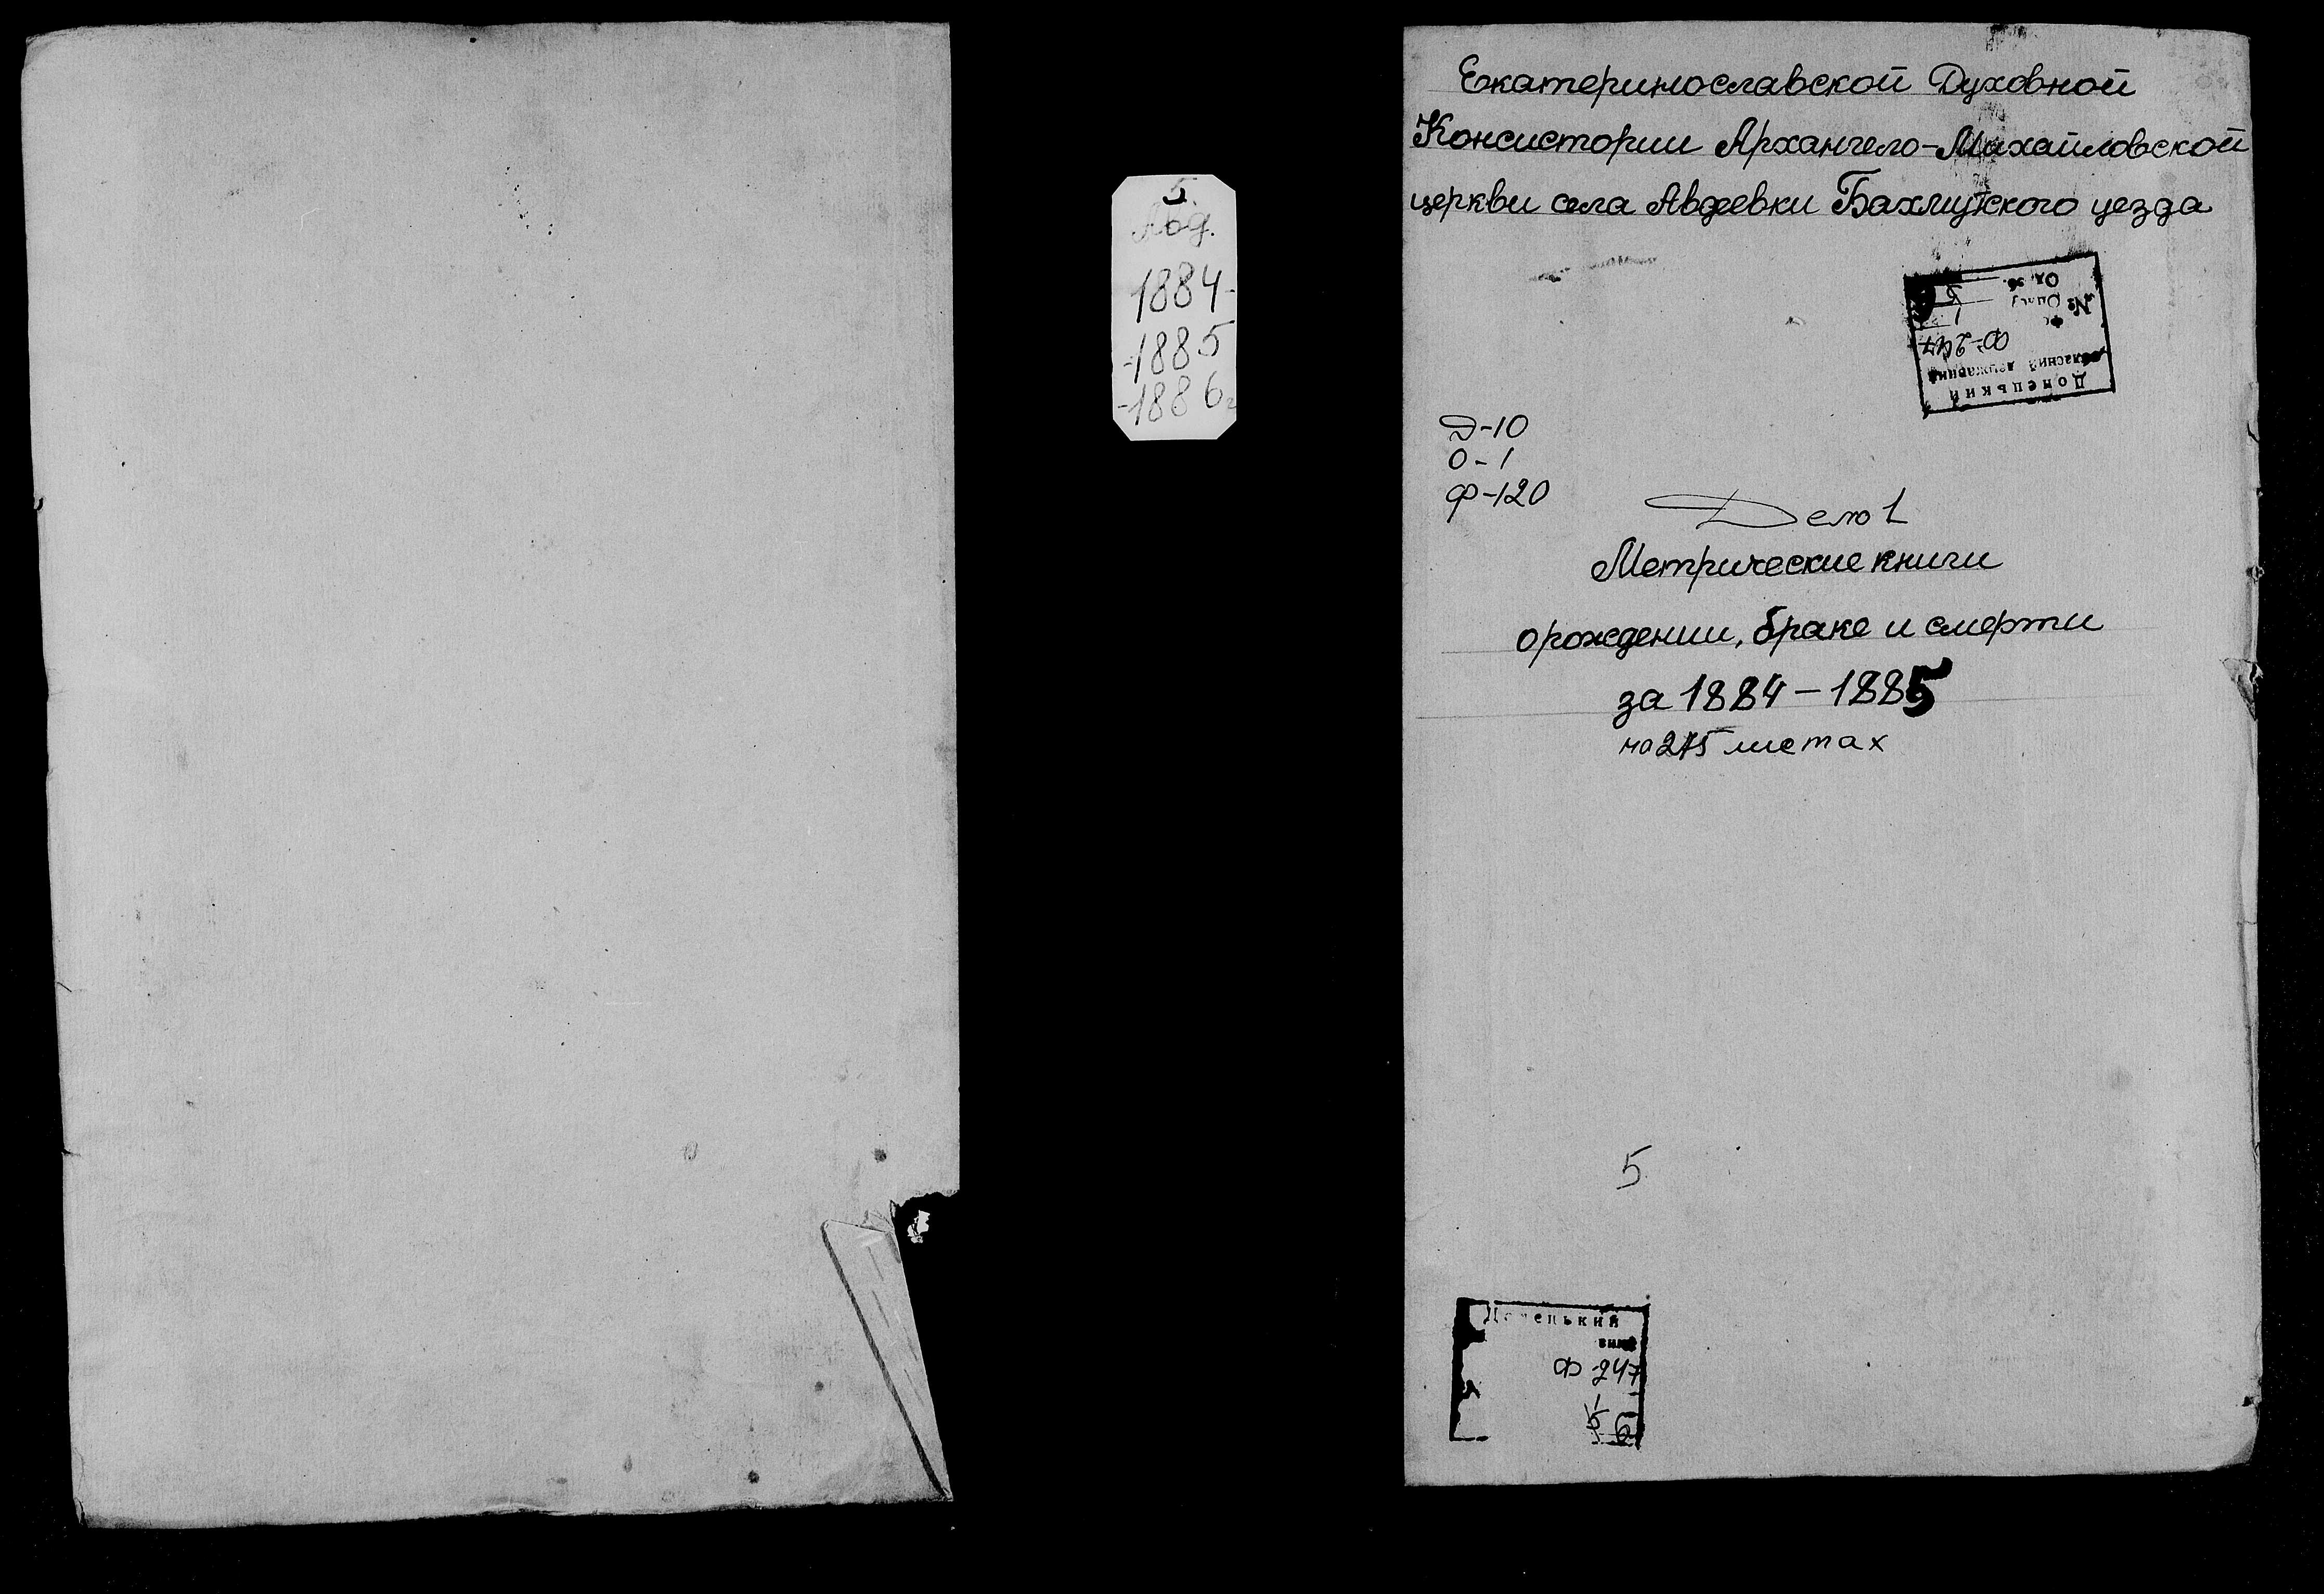 5.
Авд.
1884-
-1885
-1886г
Екатеринославской Духовной
Консистории Архангело-Михайловской
церкви села Авдеевки Бахмутского уезда
Донецький
обласний державний
Ф-247
№ Опису 1
Д-10
О-1
Ф-120
Дело 1
Метрические книги
о рождении, браке и смерти
за 1884-1885
на 275 листах
5
Донецький
Ф 247
1
6